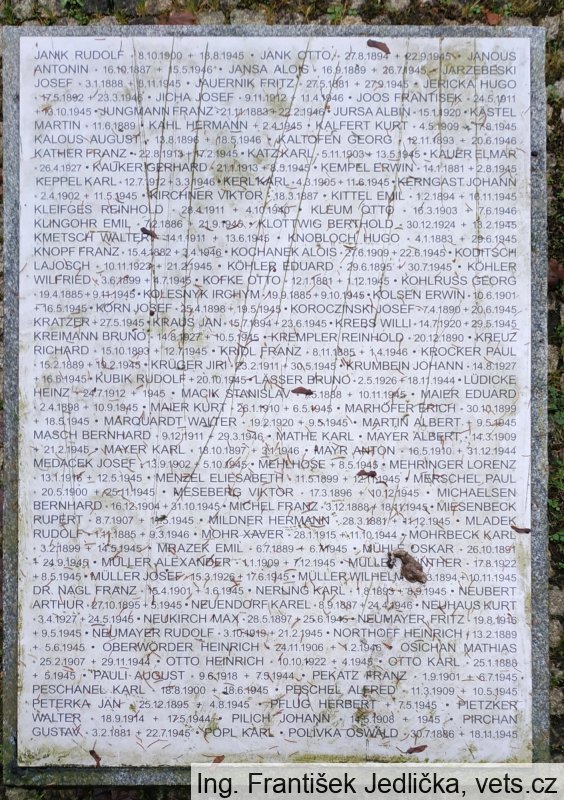 JANIK RUDOLF * 8.10.1900 + 18.8.1945 • JANK OTTO * 27.8.1894 + 22.9.1945 • JANOUS
ANTONIN * 16.10.1887 + 15.5.1946 • JANSA ALOIS * 16.9.1889 + 26.7.1945 • JARZEBESKI
JOSEF * 3.1.1888 11.1945 • JAUERNIK FRITZ * 27.5.1881 + 27.9.1945 • JERICKA HUGO
* 17.5.1892 + 23.3.1945 • JICHA JOSEF * 9.11.1912 11.4.1946 • JOOS FRANTISEK * 24.5.1911
10.1945 • JUNGMANN FRANZ * 21.11.1883 22.2.1946 • JURSA ALBIN 15.1.1920 KASTEL
MARTIN * 11.6.1889 KAHL HERMANN + 2.4.1945 • KALFERT KURT * 4.5.1909 17.8.1945
KALOUS AUGUST 8.1896 18.5.1946 • KALTOFEN GEORG * 12.11.1893 + 20.6.1946
KATHER FRANZ * 22.8.1913 17.2.1945 • KATZ KARL 5.11.1903 + 13.5.1945 • KAUER ELMAR
* 26.4.1927 • KAUKER GERHARD * 21.1.1913 8.9.1945 • KEMPEL ERWIN * 14.1.1881 2.8.1945
KEPPEL KARL * 12.7.1912 + 3.3.1946 • KERL KARL 4.3.1905 + 11.6.1945 • KERNGAST JOHANN
* 2.4.1902 + 11.5.1945 • KIRCHNER VIKTOR 18.3.1887 KITTEL EMIL * 1.2.1894 + 18.11.1945
KLEIFGES REINHOLD * 28.4.1911 4.1.1940 • KLEUM OTTO 16.3.1903 7.6.1946
KLINGOHR EMIL 7.12.1886 21.9.1945 • KLOTTWIG BERTHOLD * 30.12.1924 13.2.1945
KMETSCH WALTER 14.4.1911 + 13.6.1945 • KNOBLOCH HUGO * 4.1.1883 29.6.1945
KNOPF FRANZ * 15.4.1882 3.4.1946 • KOCHANEK ALOIS * 27.6.1909 + 22.6.1945 • KODITSCH
LAJOSCH * 10.11.1923 21.2.1945 • KÖHLER EDUARD * 29.6.1895 30.7.1945 • KÖHLER
WILFRIED * 3.6.1899 4.7.1945 • KOFKE OTTO 12.1.1881 1.12.1945 • KOHLRUSS GEORG
* 19.4.1885 + 9.11.1945 • KOLESNYK IRGHYM * 19.9.1885 + 9.10.1945 • KOLSEN ERWIN * 10.6.1901
+ 16.5.1945 • KORN JOSEF * 25.4.1898 + 19.5.1945 • KOROCZINSKI JOSEF 7.4.1890 + 20.6.1945
KRATZER + 27.5.1945 • KRAUS JAN * 15.7.1894 + 23.6.1945 • KREBS WILLI * 14.7.1920 + 29.5.1945
KREIMANN BRUNO 16.6.1927 10.5.1945 • KREMPLER REINHOLD * 20.12.1890 • KREUZ
RICHARD * 15.10.1893 12.7.1945 • KRIDL FRANZ * 8.11.1885 1.4.1946 • KROCKER PAUL
* 15.2.1889 + 19.2.1945 • KRÜGER JIRI 23.2.1911 30.5.1945 • KRUMBEIN JOHANN * 14.8.1927
+ 16.6.1945 • KUBIK RUDOLF 20.10.1945 • LASSER BRUNO 2.5.1926 + 18.11.1944 • LÜDICKE
HEINZ * 24.7.1912 1945 • MACIK STANISLAV 8.1888 10.11.1945 • MAIER EDUARD
* 2.4.1898 + 10.9.1945 • MAIER KURT * 26.1.1910 + 6.5.1945 • MARHOFER ERICH * 30.10.1899
+ 18.5.1945 • MARQUARDT WALTER * 19.2.1920 + 9.5.1945 • MARTIN ALBERT + 9.5.1945
MASCH BERNHARD * 9.12.1911 + 29.3.1946 • MATHE KARL • MAYER ALBERT * 14.3.1909
+ 21.2.1945 • MAYER KARL * 8.10.1897 3.1.1946 • MAYR ANTON * 16.5.1910 31.12.1944
MEDACEK JOSEF 13.9.1902 5.10.1945 • MEHNHOSE + 8.5.1945 • MEHRINGER LORENZ
* 13.1.1916 + 12.5.1945 • MENZEL ELIESABETH * 11.5.1899 + 12.1945 • MERSCHEL PAUL
* 20.5.1900 25.11.1945 • MESEBERG VIKTOR * 17.3.1896 10.12.1945 • MICHAELSEN
BERNHARD * 16.12.1904 31.10.1945 • MICHEL FRANZ * 3.12.1888 18.1.1945 • MIESENBECK
RUPERT * 8.7.1907 5.1945 • MILDNER HERMANN * 28.3.1881 11.12.1945 • MLADEK
RUDOLF * 14.1.1885 + 9.3.1946 • MOHR XAVER * 28.1.1915 + 11.10.1944 • MOHRBECK KARL
* 3.2.1899 + 14.5.1945 • MRAZEK EMIL * 6.7.1889 + 6.1.1945 • MÜHL OSKAR * 26.10.1891
+ 24.9.1945 • MÜLLER ALEXANDER * 1.1.1909 + 7.12.1945 • MÜLLER GÜNTHER * 17.8.1922
+ 8.5.1945 • MÜLLER JOSEF * 15.3.1926 + 17.6.1945 • MÜLLER WILHELM 3.1894 + 10.11.1945
DR. NAGL FRANZ * 15.4.1901 1.6.1945 • NERLING KARL * 1.8.1893 + 8.9.1945 • NEUBERT
ARTHUR * 27.10.1895 + 15.1945 • NEUENDORF KAREL * 8.9.1887 24.4.1946 • NEUHAUS KURT
* 3.4.1927 + 24.5.1945 • NEUKIRCH MAX * 28.5.1897 + 25.6.1945 • NEUMAYER FRITZ * 19.8.1916
+ 9.5.1945 • NEUMAYER RUDOLF * 3.10.1919 + 21.2.1945 • NORTHOFF HEINRICH * 13.2.1889
+ 5.6.1945 • OBERWÖRDER HEINRICH * 24.11.1906 4.2.1946 • OSICHAN MATHIAS
* 25.2.1907 + 29.11.1944 • OTTO HEINRICH * 10.10.1922 + 4.1945 • OTTO KARL * 25.1.1888
+ 5.1945 • PAULI AUGUST * 9.6.1918 + 7.5.1944 • PEKATZ FRANZ * 1.9.1901 + 6.7.1945
PESCHANEL KARL * 18.8.1900 + 18.6.1945 • PESCHEL ALFRED * 11.3.1909 + 10.5.1945
PETERKA JAN * 25.12.1895 + 4.8.1945 • PFLUG HERBERT + 7.5.1945 • PIETZKER
WALTER * 18.9.1914 + 17.5.1944 • PILICH JOHANN * 14.5.1908 1945 • PIRCHAN
GUSTAV * 3.2.1881 + 22.7.1945 • POPL KARL • POLIVKA OSWALD * 30.7.1886 + 18.11.1945
Ing. František Jedlička, vets.cz